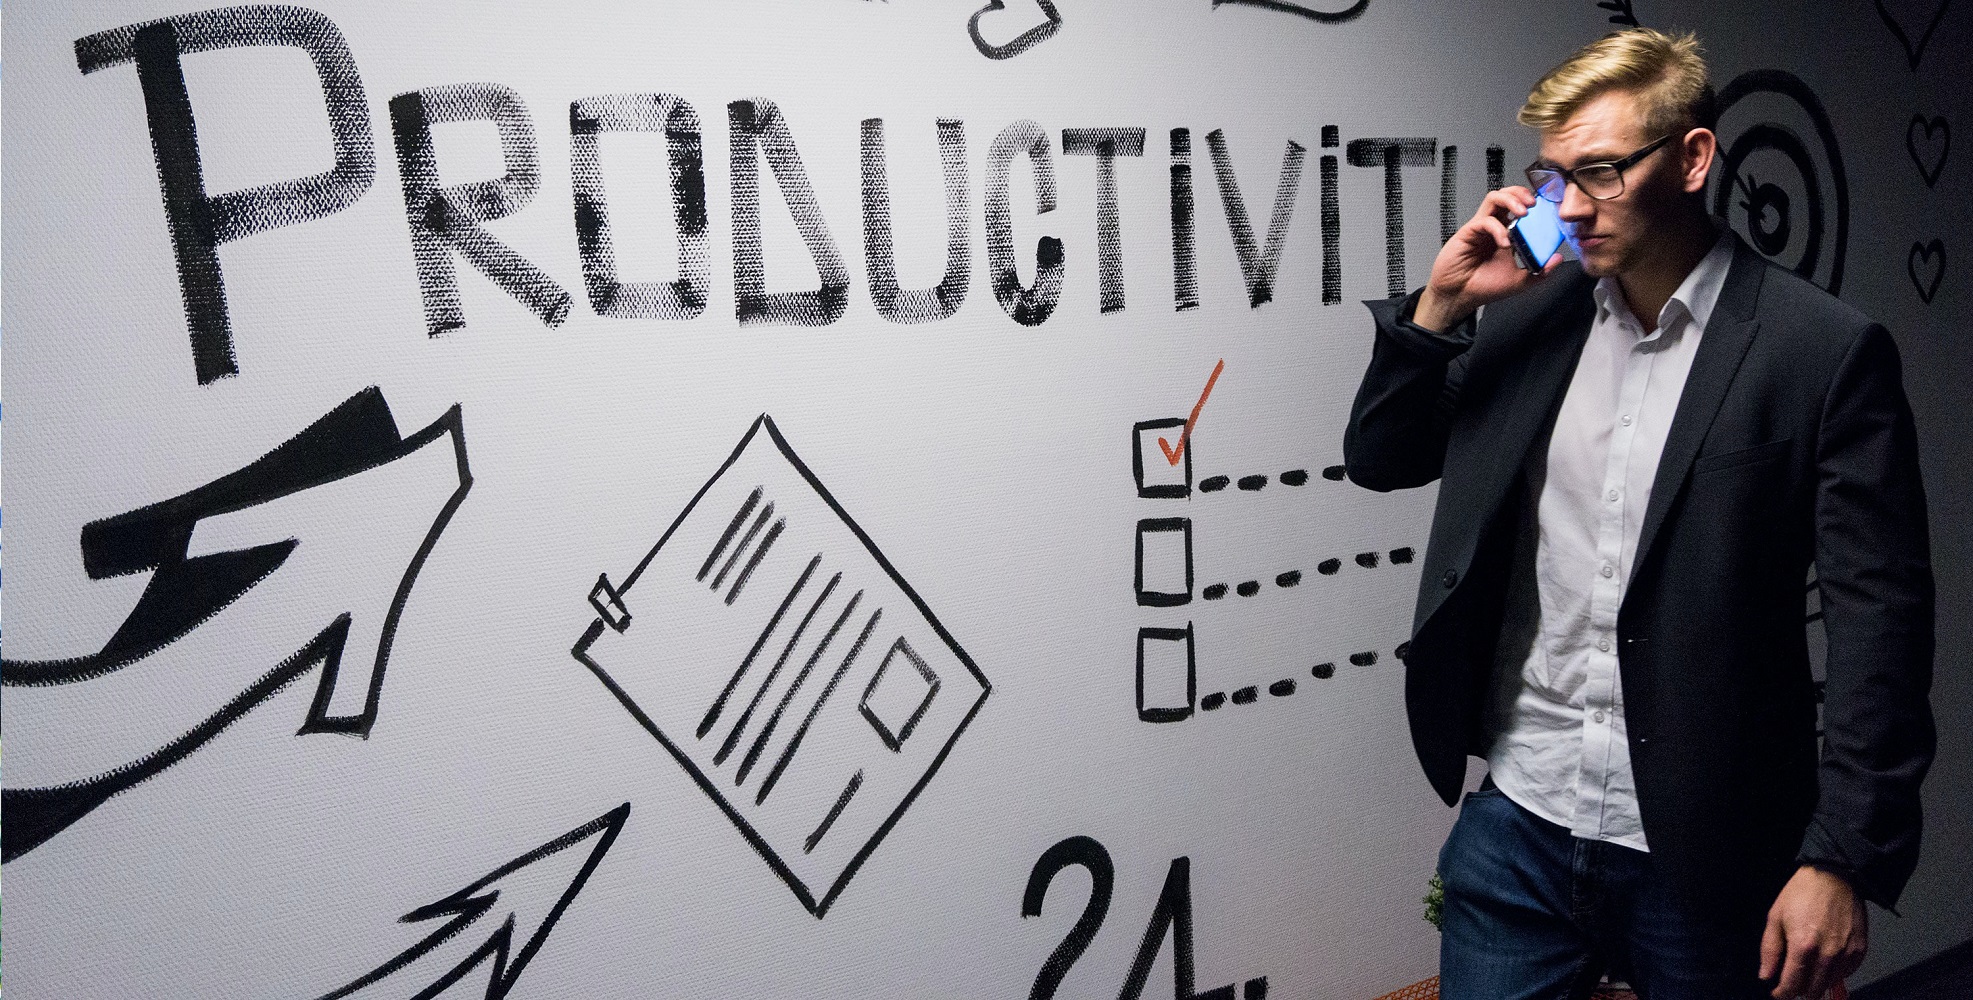 PRODUCTiViTY
24